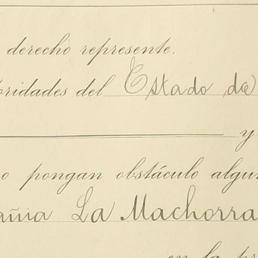 derecho represente.
ridades del Estado de
y
o pongan obstáculo algu
añia La Machorra
en la pr